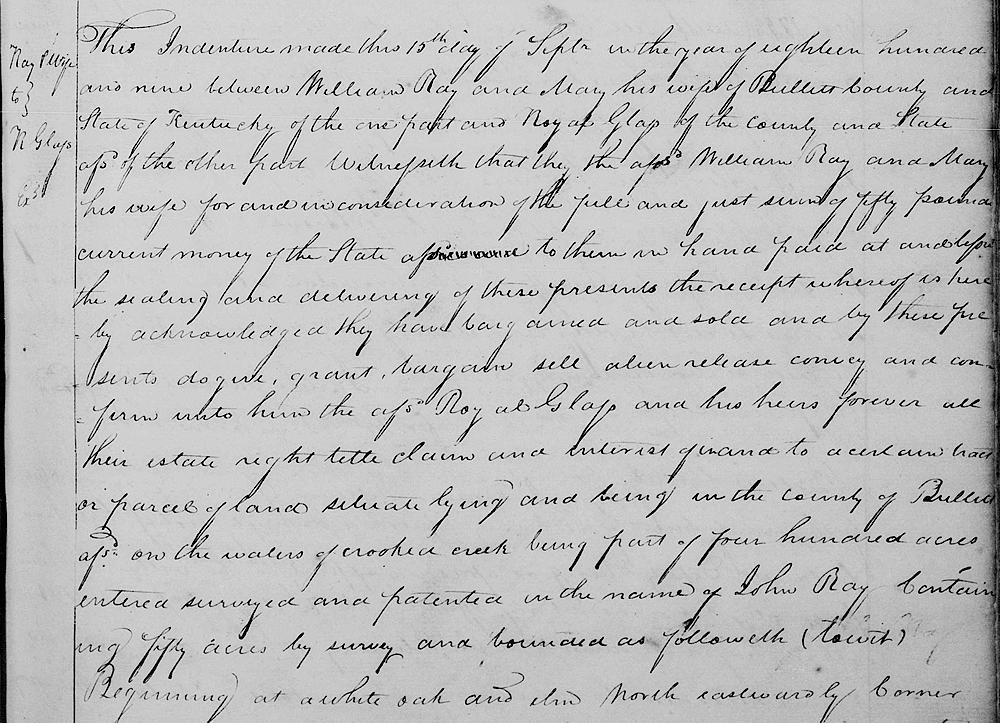 Ray & wife
to }
R Glass
Exd
This Indenture made this 15th day of Septr in the year of eighteen hundred
and nine between William Ray and Mary his wife of Bullitt County and
State of Kentucky of the one part and Royal Glass of the county and State
afsd of the other part Witnesseth that they the afsd William Ray and Mary
his wife for and in consideration of the full and just sum of fifty pound
current money of the State afsd to them in hand paid at and before
the sealing and delivering of these presents the receipt whereof is here
-by acknowledged they have bargained and sold and by these pre
-sents do give, grant, bargain sell alien release convey and con-
-firm unto him the afsd Royal Glass and his heirs forever all
their estate right title claim and interest of in and to a certain tract
or parcel of land situate lying and being in the county of Bullitt
afsd on the waters of crooked creek being part of four hundred acres
entered surveyed and patented in the name of John Ray Contain
ing fifty acres by survey and bounded as followeth (towit)
Beginning at a white oak and elm North eastwardly Corner